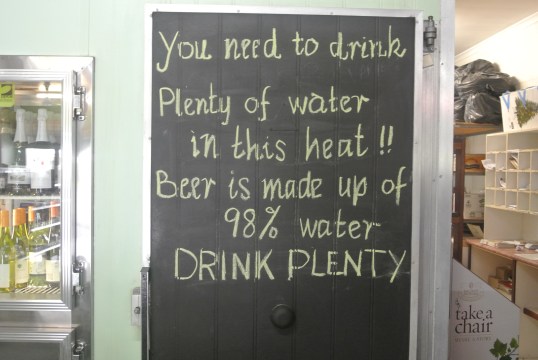 You need to drink
Plenty of water
in this heat !!
Beer is made up of
98% water
DRINK PLENTY
take a
chair